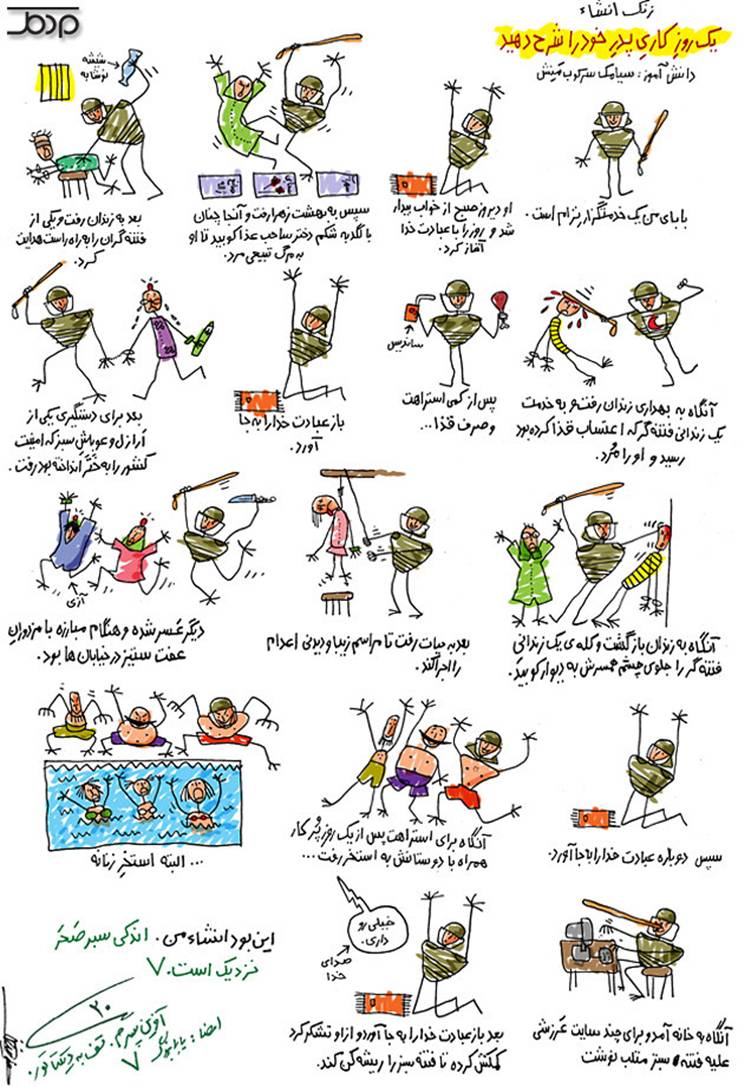 مردمک
زنگ انشاء
یک روز کاری پدر خود را شرح دهید
دانش آموز: سیامک سرکوب منش
بابای من یک خدمتگزار نزام است.
او دیروز صبح از خواب بیدار
شد و روز را با عبادت خدا
آغاز کرد.
سپس به بهشت زهرا رفت و آنجا چنان
با لگد به شکم دختر صاحب عذا کوبید تا او
به مرگ تبیعی مرد.
شیشه
نوشابه
بعد به زندان رفت و یکی از
فتنه گران را به راه راست هدایت
کرد.
آنگاه به بهداری زندان رفت و به خدمت
یک زندانی فتنه گر که اعتساب قذا کرده بود
رسید و او را مُرد.
ساندیس
پس از کمی استراهت
و صرف قذا...
باز عبادت خدا را به جا
آورد.
بعد برای دستگیری یکی از
ارازل و عوباش سبز که امنیت
کشور را به ختر انداخته بود رفت.
آنگاه به زندان بازگشت و کله ی یک زندانی
فتنه گر را جلوی چشم همسرش به دیوار کوبید.
بعد به حیات رفت تا مراسم زیبا و دیدنی اعدام
را اجرا کند.
دیگر عسر شده و هنگام مبارزه با مزدوران
عفت ستیز در خیابان ها بود.
سپس دوباره عبادت خدا را به جا آورد.
آنگاه برای استراهت پس از یک روز پُر کار
همراه با دوستانش به استخر رفت...
... البته استخر زنانه
آنگاه به خانه آمد و برای چند سایت عرزشی
علیه فتنه سبز متلب نوشت
خیلی رو
داری.
صدای
خدا
بعد باز عبادت خدا را به جا آورد و از او تشکر کرد
کمکش کرده تا فتنه سبز را ریشه کن کند.
این بود انشاء من. اندکی سبر صحر
نزدیک است. ٧
٢٠
آفرین پسرم.
امضاء: